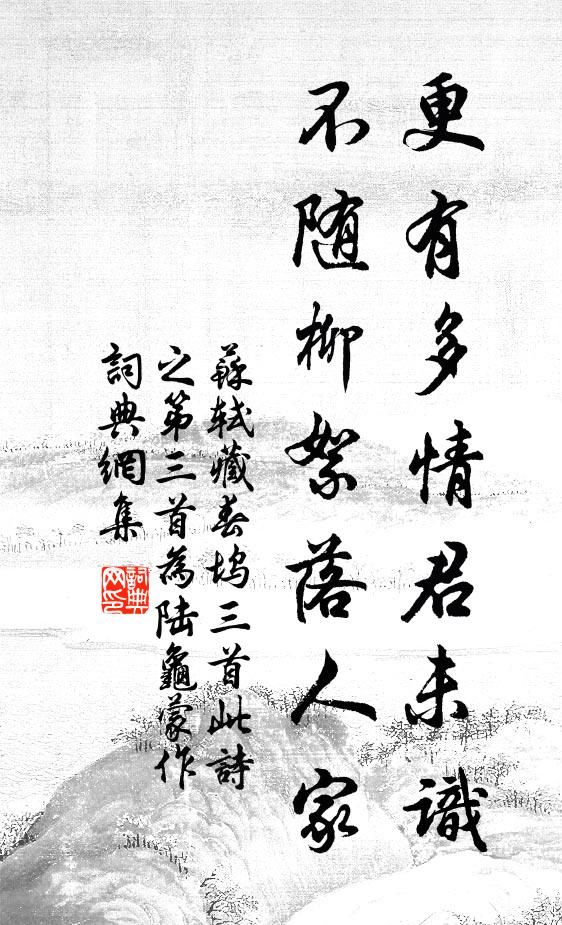 更有多情君未識
不随柳絮落人家
蘇軾藏春塢三首此詩
之第三首為陆龜蒙作
詞典網集
詞典
网印